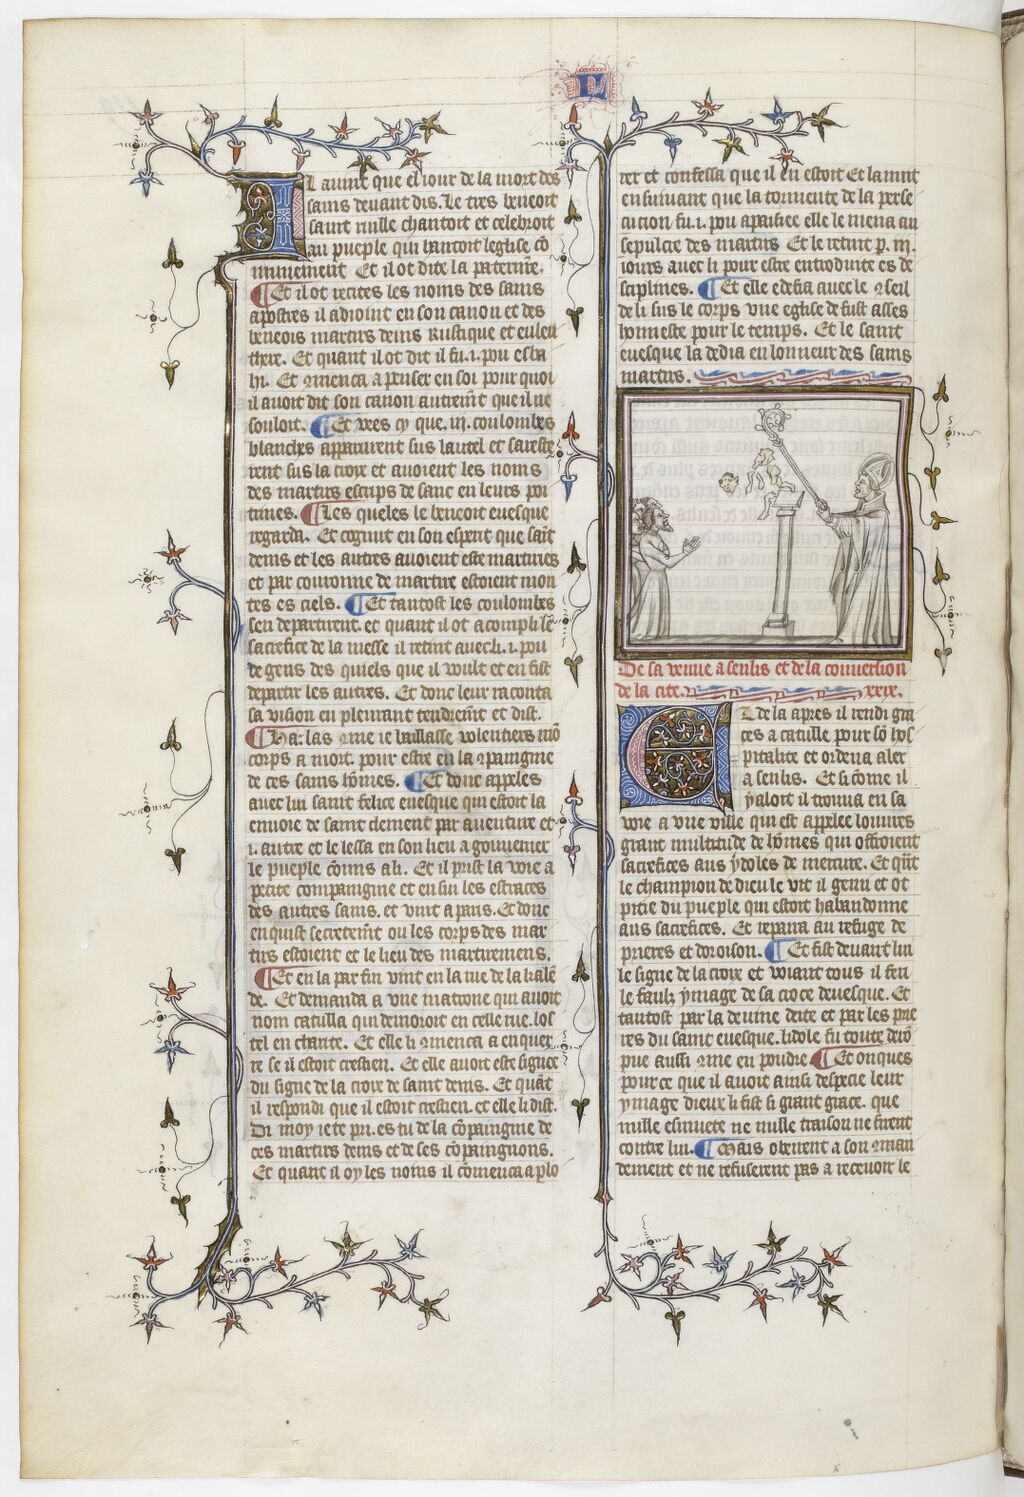 L
Il auint que el iour de la mort des
sains deuant dis. Le tres benoeit
saint riulle chantoit et celebroit
au pueple qui hantoit leglise cō
munement Et il ot dite la paternr̄e.
¶ Et il ot recites les noms des sains
apostres il adioint en son canon et des
beneois martirs denis Rustique et euleu
there. Et quant il ot dit il fu .i. pou esba
hi. Et ꝯmenca a penser en soi pour quoi
il auoit dit son canon autremt̄ que il ne
souloit. ¶ Et vees cy que .iij. coulombes
blanches apparurent sus lautel et sareste
rent sus la croix et auoient les noms
des martirs escrips de sanc en leurs poi
trines. ¶ Les queles le benoeit euesque
regarda. Et cognut en son esperit que sait̄
denis et les autres auoient este martiries
et par couronne de martire estoient mon
tes es ciels. ¶ Et tantost les coulombes
sen departirent. et quant il ot acompli le
sacrefice de la messe il retint auec li .i. pou
de gens des quiels que il voult et en fist
departir les autres. Et donc leur raconta
sa vision en pleurant tendremt̄ et dist.
¶ Ha: las ꝯme ie baillasse volentiers mō
corps a mort. pour estre en la ꝯpaingnie
de ces sains hōmes. ¶ Et donc appeles
auec lui saint felice euesque qui estoit la
enuoie de saint clement par auenture et
.i. autre et le lessa en son lieu a gouuerner
le pueple cōmis a li. Et il prist la voie a
petite compaingnie et ensui les estraces
des autres sains. et vint a paris. Et donc
enquist secretemt̄ ou les corps des mar
tirs estoient et le lieu des martiremens.
¶ Et en la par fin vint en la rue de la kalē
de. Et demanda a vne matrone qui auoit
nom catulla qui demoroit en celle rue. los
tel en charite. Et elle li ꝯmenca a enquer
re se il estoit crestien. Et elle auoit este signee
du signe de la croix de saint denis. Et quāt
il respondi que il estoit crestien. et elle li dist.
Di moy ie te pri. es tu de la cōpaingnie de
ces martirs denis et de ses cōpaingnons.
Et quant il oy les noms il cōmenca a plo
rer et confessa que il en estoit Et lamnt
ensuiuant que la tormente de la perse
cucion fu .i. pou apaisiee elle le mena au
sepulcre des martirs Et le retint p. m.
iours auec li pour estre entroduite es de
sciplines. ¶ Et elle edefia auec le ꝯseil
de li sus le corps vne eglise de fust asses
honneste pour le temps. Et le saint
euesque la dedia en lonneur des sains
martirs.
De sa venue a senlis et de la conuersion
de la cite. xxix.
Et de la apres il rendi gra
ces a catulle pour sō hos
pitalite et ordena aler
a senlis. Et si cōme il
y aloit il trouua en sa
voie a vne ville qui est appelee louures
grant multitude de hōmes qui offroient
sacrefices aus ydoles de mercure. Et qn̄t
le champion de dieu le vit il gemi et ot
pitie du pueple qui estoit habandonne
aus sacrefices. Et repaira au refuge de
prieres et doroison. ¶ Et fist deuant lui
le signe de la croix et voiant tous il feri
le faulx ymage de sa croce deuesque. Et
tantost par la deuine deite et par les prie
res du saint euesque. lidole fu toute derō
pue aussi ꝯme en poudre ¶ Et onques
pour ce que il auoit ainsi despecie leur
ymage dieux li fist si grant grace. que
nulle esmuete ne nulle traison ne firent
contre lui. ¶ Mais obeirent a son ꝯman
dement et ne refuserent pas a receuoir le